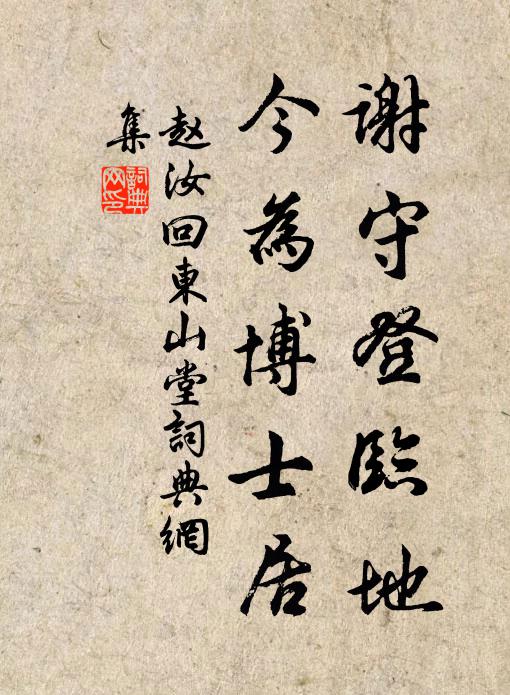 謝守登臨地
今為博士居
赵汝回東山堂詞典網
集
詞典网印